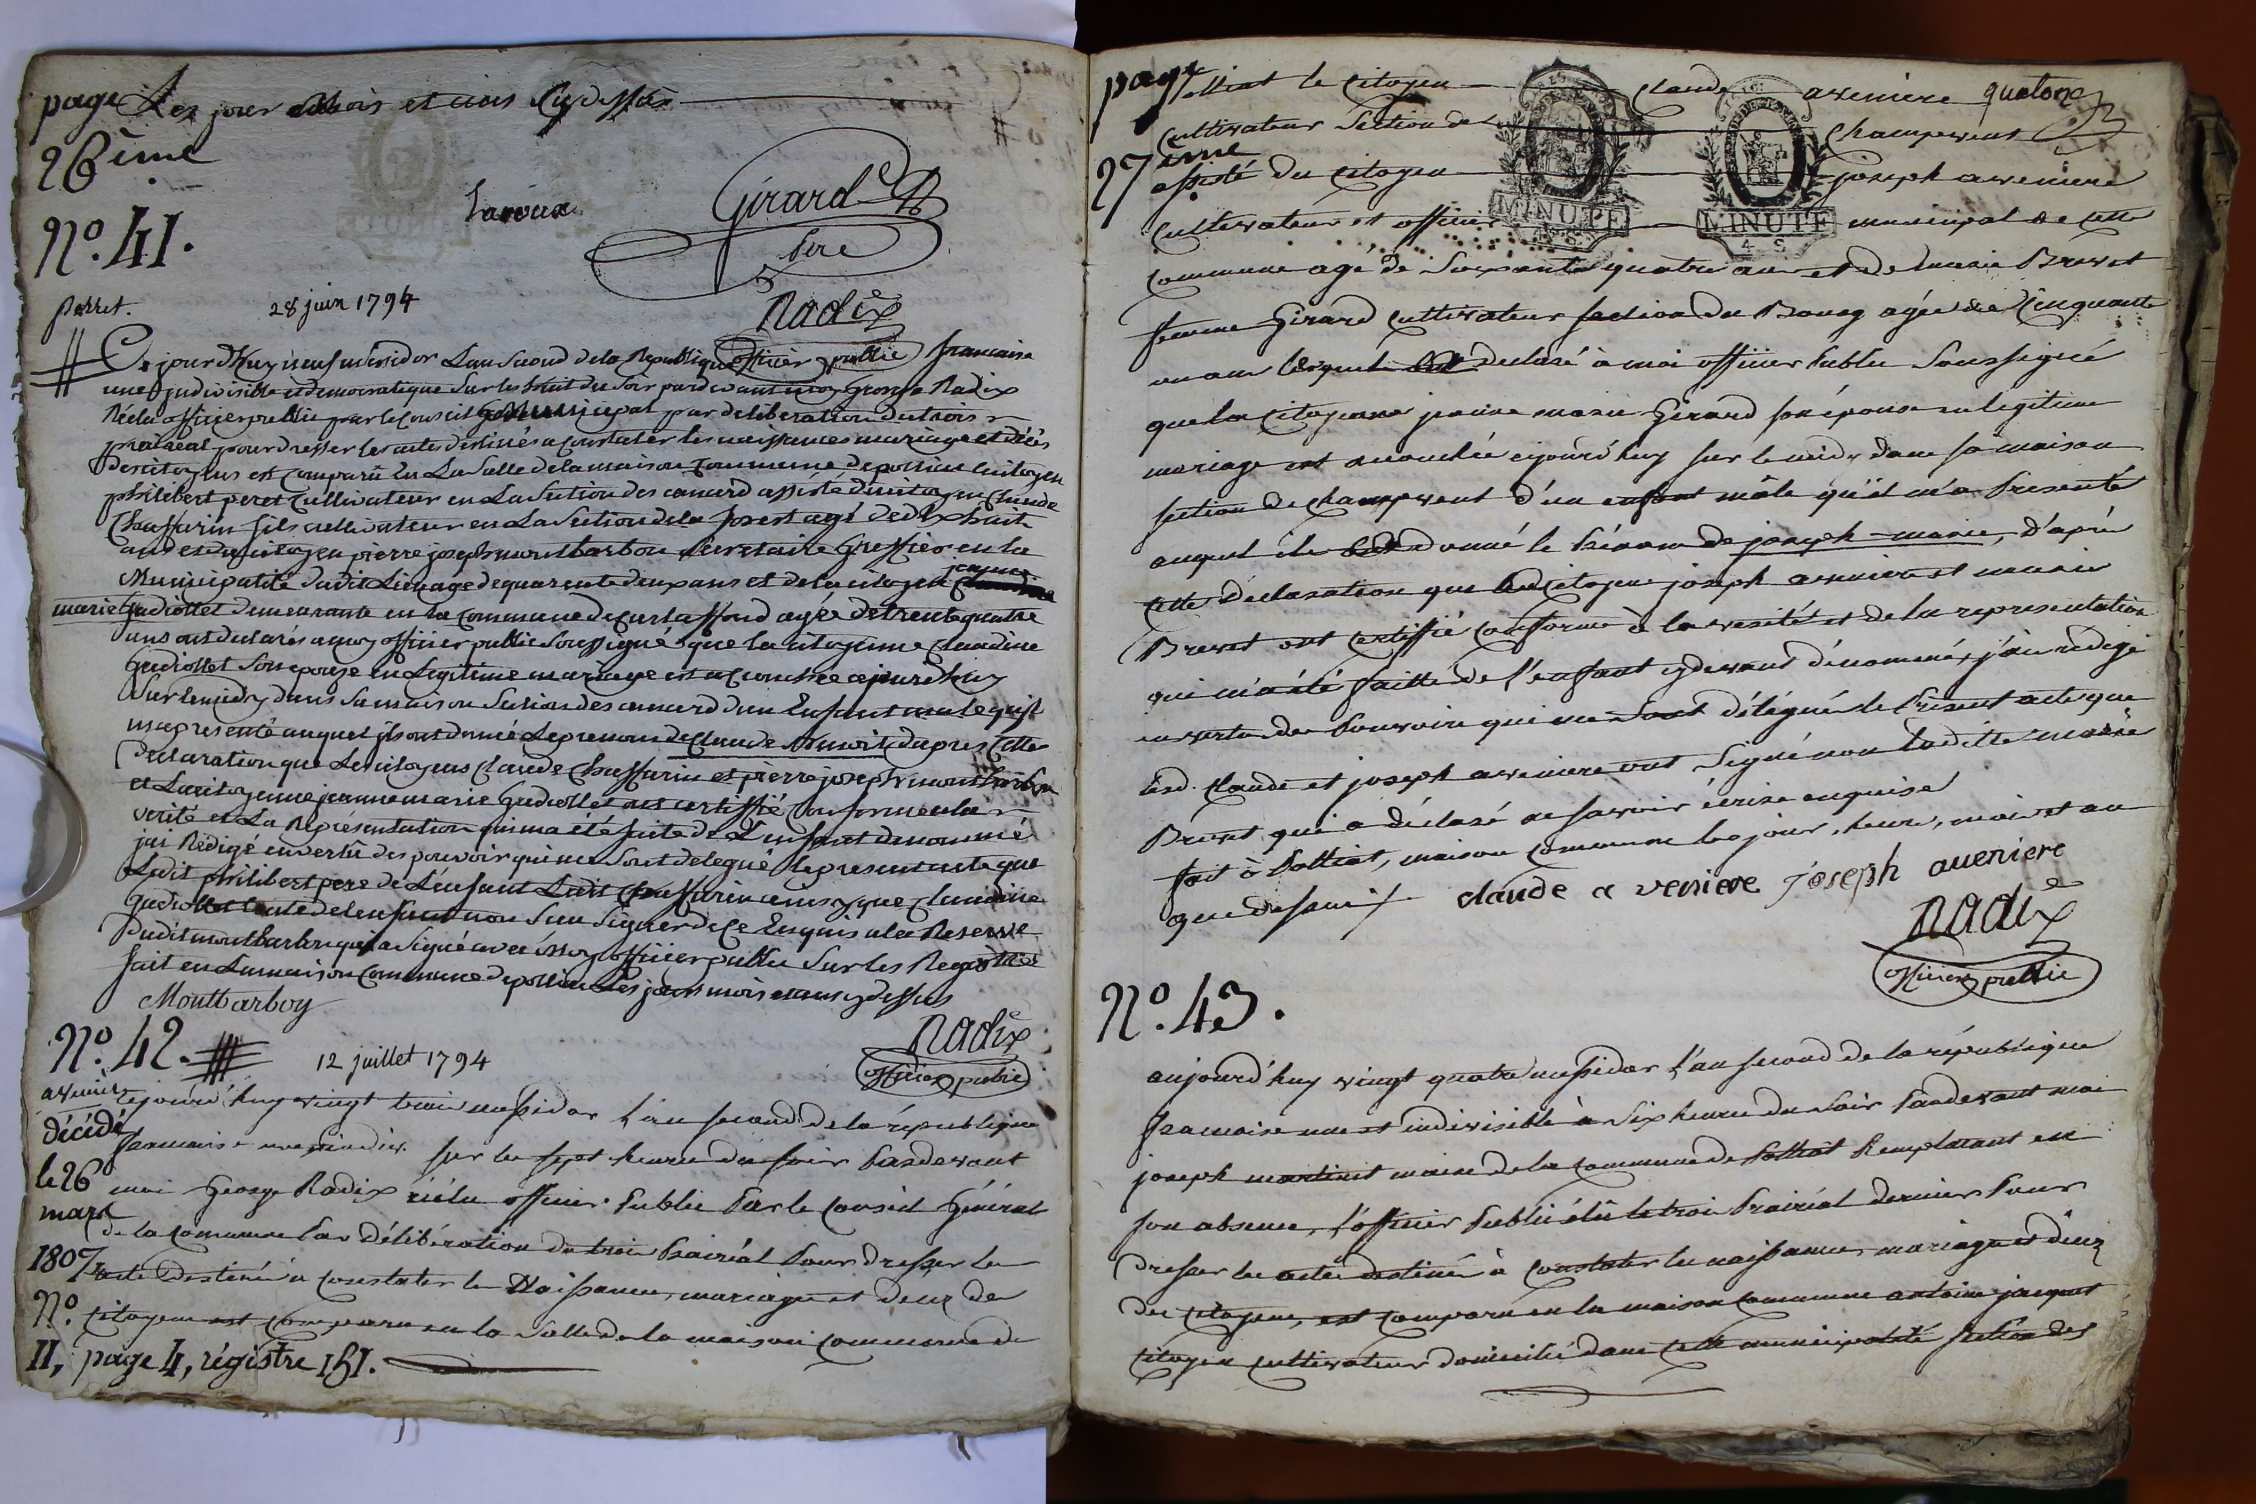 page Les jour mois et ans Cy dessus
26ème
Nº. 41.
Lavoux
Girard
Père
perret.
28 juin 1794
Radix
officier public
Ce jourdhuy neuf messidor Lan Second de la Republique francaise
une indivisible et democratique Sur les huit du Soir pardevant moy George Radix
Réélu officier public par le Conseil municipal par deliberation du trois
prairéal pour dresser les actes destinés a Constater les naissances mariage et décès
des citoyens est Comparû En La Salle de la maison Commune de polliat le citoyen
philibert peret Cultivateur en La Section des canard assisté du citoyen Claude
Chaffurin fils cultivateur en La Section de la forest agé de dix huit
ans et du citoyen pierre joseph montbarbon Secretaire Greffier en la
Municipalité dudit Lieu age de quarente deux ans et de la citoyen jeanne
marie Gudiollet demeurante en la Commune de Curtaffond agée de trente quatre
ans ont declarés a moy officier public Soussigné que la citoyenne Claudine
Gudiollet Son epouse en Legitime mariage est accouchée cejourdhuy
Sur le midy dans Sa maison Section des canard d'un Enfant male quil
ma presenté auquel ils ont donné Le prenom de Claude Benoit dapres Cette
declaration que Le citoyens Claude Chaffurin et pierre joseph montbarbon
et La citoyenne jeanne marie Gudiollet ont certiffié Conforme a la
verité et La Représentation qui ma été faite de L'enfant denommé
jai Rédigé en vertû des pouvoir qui me Sont delegué le present acte que
Ledit philibert pere de L'enfant Ledit Chaffurin
Gudiollet tante de lenfant non Seu Signer de Ce Enquis a la Reserve
dudit montbarbon qui a Signé avec moy officier public Sur les Registres
fait en La maison Commune de polliat Les jours mois et ans cy dessus
Montbarboy
Radix
officier public
Nº. 42.
12 juillet 1794
avenière
cejourd'huy vingt trois messidor l'an second de la république
décédé
francaise une indiv. sur les sept heures du soir Pardevant
le 26
moi George Radix réélu officier Public Par le Conseil Général
mars
de la commune Par délibération du trois Prairéal Pour dresser les
1807
acte Destinés à Constater les Naissances, mariages et decez des
Nº.
Citoyens est comparu en la Salle de la maison commune de
II, page 4, régistre 151.
page Polliat le citoyen Claude avenière quatorze
Cultivateur Section de Champvent
27ème
assisté du citoyen joseph avenière
MINUTE
MINUTE
Cultivateur et officier municipal de cette
4 S
4 S
commune agé de Soixante quatre ans et de marie Brevet
femme Girard Cultivateur section du Bourg agée de Cinquante
un ans lesquels ont declaré à moi officier Public Soussigné
que la citoyenne jeanne marie Girard son épouse en legitime
mariage est accouchée cejourd'huy sur le midy dans sa maison
section de champvent d'un enfant mâle qu'il m'a Presenté
auquel ils ont donné le Prénom de joseph-marie, D'après
Cette déclaration que les citoyens joseph avenière et marie
Brevet ont certiffié conforme à la verité et de la representation
qui m'a été faitte de l'enfant cydevant dénommé, j'ai redigé
en vertu des Pouvoirs qui me sont délégués le Present acte que
lesd. Claude et joseph avenière ont signé non ladite marie
Brevet qui a déclaré ne savoir écrire enquise
fait à Polliat, maison commune les jour, heure, mois et an
que dessus
claude a veniere joseph aueniere
Radix
officier public
Nº. 43.
aujourd'huy vingt quatre messidor l'an second de la république
francaise une et indivisible à six heures du soir Pardevant moi
joseph martinet maire de la commune de Polliat Remplacant en
son absence, l'officier Public élu le trois Prairéal dernier Pour
dresser les actes destinés à constater les naissances, mariages et décez
des citoyens, est comparu en la maison commune antoine jacquet
citoyen cultivateur domicilié dans cette municipalité section des